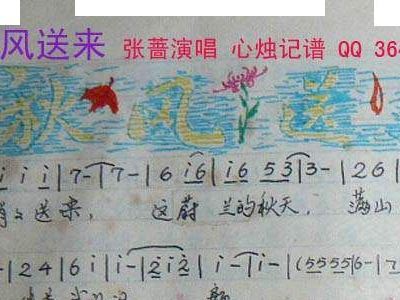 风送来 张蔷演唱 心烛记谱 QQ 36
秋风送
i i i|7-|7-|6 i6|i6 53|3-|26|
送来, 这蔚 兰的秋天, 满山
-|24|6 i|i-|2i2|i-|i-|(5555|6